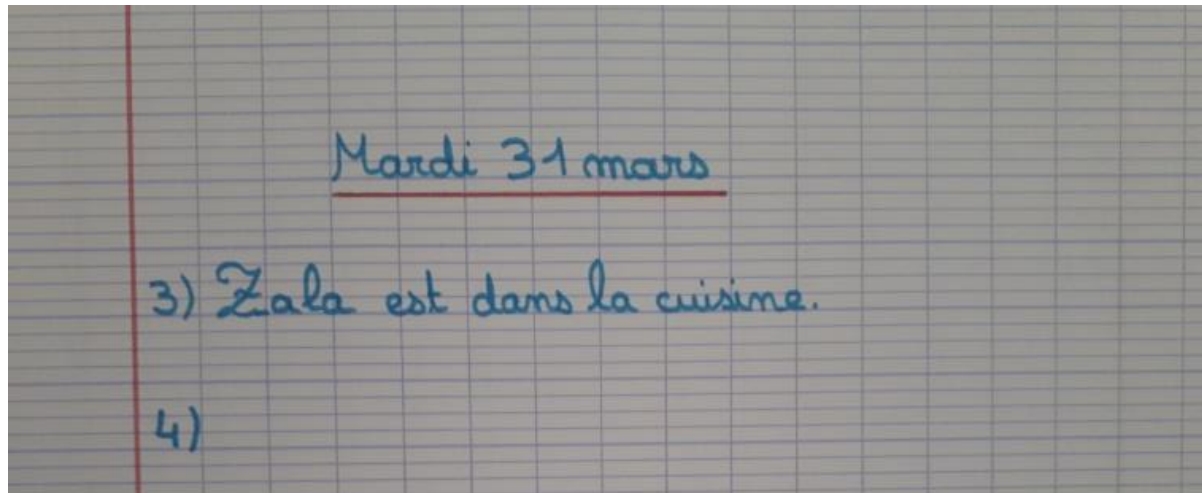 Mardi 31 mars
3) Zala est dans la cuisine.
4)